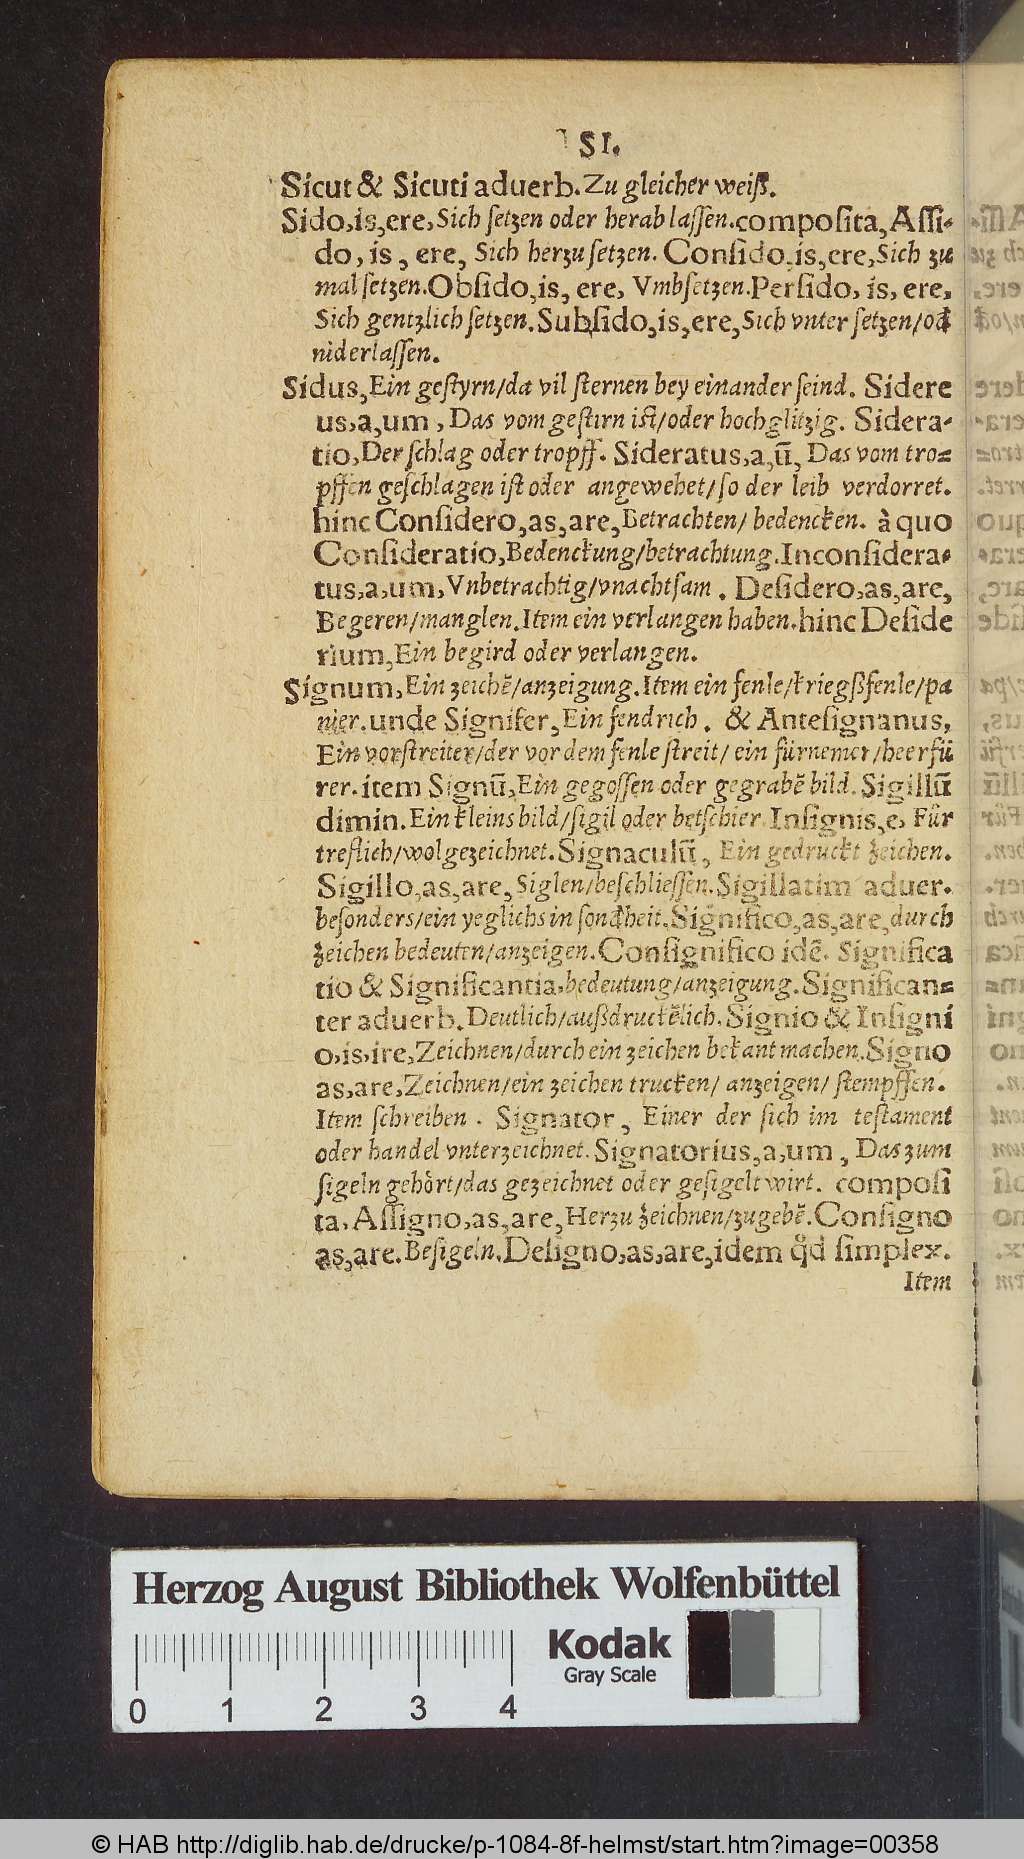 SI.
Sicut & Sicuti aduerb. Zu gleicher weiß.
Sido, is, ere, Sich ſetzen oder herab laſſen. compoſita, Aſſi-
do, is, ere, Sich herzu ſetzen. Conſido, is, ere, Sich zu
mal ſetzen. Obſido, is, ere, Vmbſetzen. Perſido, is, ere,
Sich gentzlich ſetzen. Subſido, is, ere, Sich vnter ſetzen/od̄
niderlaſſen.
Sidus, Ein geſtyrn/da vil ſternen bey einander ſeind. Sidere
us, a, um, Das vom geſtirn iſt/oder hochglitzig. Sidera-
tio, Der ſchlag oder tropff. Sideratus, a, ũ, Das vom tro-
pffen geſchlagen iſt oder angewehet/ſo der leib verdorret.
hinc Conſidero, as, are, Betrachten/ bedencken. à quo
Conſideratio, Bedenckung/betrachtung. Inconſidera-
tus, a, um, Vnbetrachtig/vnachtſam. Deſidero, as, are,
Begeren/manglen. Item ein verlangen haben. hinc Deſide
rium, Ein begird oder verlangen.
Signum, Ein zeichẽ/anzeigung. Item ein fenle/kriegßfenle/pa
nier. unde Signifer, Ein fendrich. & Anteſignanus,
Ein vorſtreiter/der vor dem fenle ſtreit/ ein fürnemer/heerfü
rer. item Signũ, Ein gegoſſen oder gegrabẽ bild. Sigillũ
dimin. Ein kleins bild/ſigil oder betſchier. Inſignis, e, Für
treflich/wolgezeichnet. Signaculũ, Ein gedruckt zeichen.
Sigillo, as, are, Siglen/beſchlieſſen. Sigillatim aduer.
beſonders/ein yeglichs in ſond̄heit. Significo, as, are, durch
zeichen bedeuten/anzeigen. Conſignifico idẽ. Significa
tio & Significantia, bedeutung/anzeigung. Significan-
ter aduerb. Deutlich/außdruckẽlich. Signio & Inſigni
o, is, ire, Zeichnen/durch ein zeichen bekant machen. Signo
as, are, Zeichnen/ein zeichen trucken/ anzeigen/ ſtempffen.
Item ſchreiben. Signator, Einer der ſich im teſtament
oder handel vnterzeichnet. Signatorius, a, um, Das zum
ſigeln gehört/das gezeichnet oder geſigelt wirt. compoſi
ta, Aſſigno, as, are, Herzu zeichnen/zugebẽ. Conſigno
as, are. Beſigeln. Deſigno, as, are, idem q̊d ſimplex.
Item
Herzog August Bibliothek Wolfenbüttel
Kodak
Gray Scale
0 1 2 3 4
© HAB http://diglib.hab.de/drucke/p-1084-8f-helmst/start.htm?image=00358